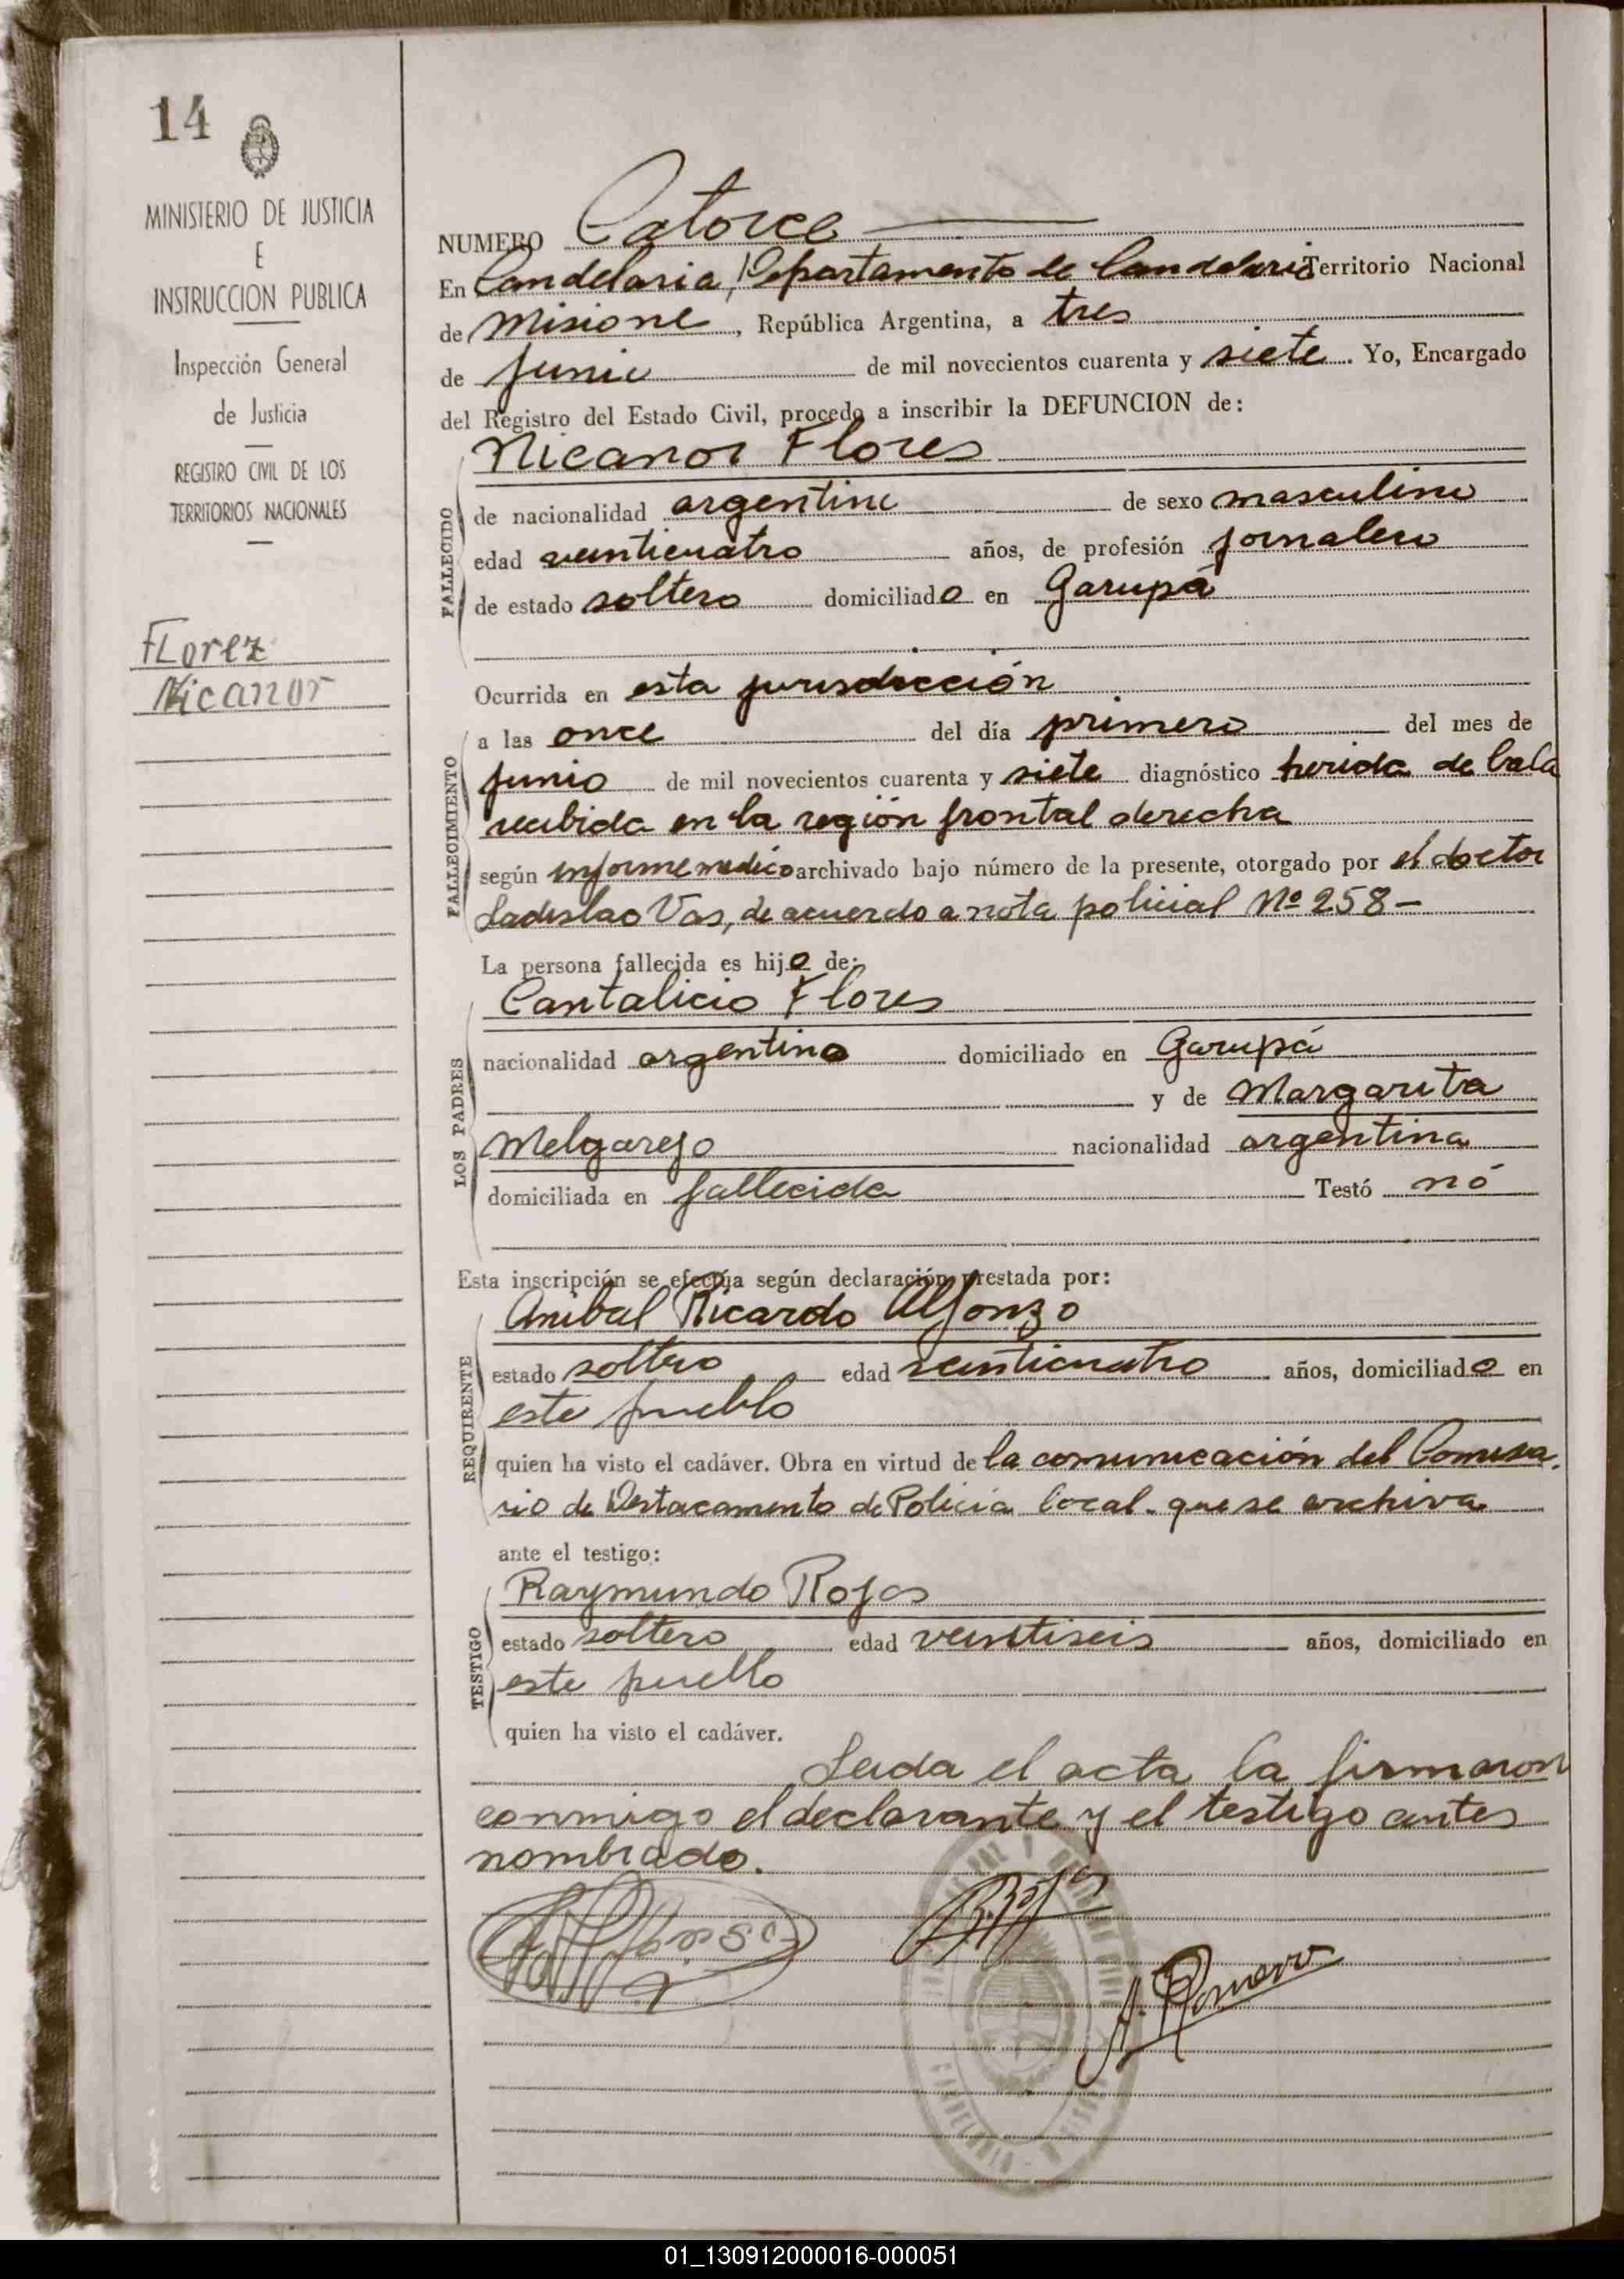 14
MINISTERIO DE JUSTICIA
E
INSTRUCCION PUBLICA
Inspección General
de Justicia
REGISTRO CIVIL DE LOS
TERRITORIOS NACIONALES
FLorez
Nicanor
NUMERO Catorce
En Candelaria, Departamento de Candelaria Territorio Nacional
de Misione, República Argentina, a tres
de junio de mil novecientos cuarenta y siete. Yo, Encargado
del Registro del Estado Civil, procedo a inscribir la DEFUNCION de:
FALLECIDO
Nicanor Flores
de nacionalidad argentino de sexo masculino
edad veinticuatro años, de profesión jornalero
de estado soltero domiciliado en Garupá
FALLECIMIENTO
Ocurrida en esta jurisdicción
a las once del día primero del mes de
junio de mil novecientos cuarenta y siete diagnóstico herida de bala
recibida en la región frontal derecha
según informe medico archivado bajo número de la presente, otorgado por el doctor
Ladislao Vas, de acuerdo a nota policial Nº 258-
La persona fallecida es hijo de:
LOS PADRES
Cantalicio Flores
nacionalidad argentino domiciliado en Garupá
y de Margarita
Melgarejo nacionalidad argentina
domiciliada en fallecida Testó nó
Esta inscripción se efectúa según declaración prestada por:
REQUIRENTE
Anibal Ricardo Alfonzo
estado soltero edad veinticuatro años, domiciliado en
este pueblo
quien ha visto el cadáver. Obra en virtud de la comunicación del Comisa.
rio de Destacamento de Policia local que se archiva
ante el testigo:
TESTIGO
Raymundo Rojas
estado soltero edad veintiseis años, domiciliado en
este pueblo
quien ha visto el cadáver.
Leida el acta la firmaron
conmigo el declarante y el testigo antes
nombrado.
R. Rojas
A. Romero
CANDELARIA
01_130912000016-000051